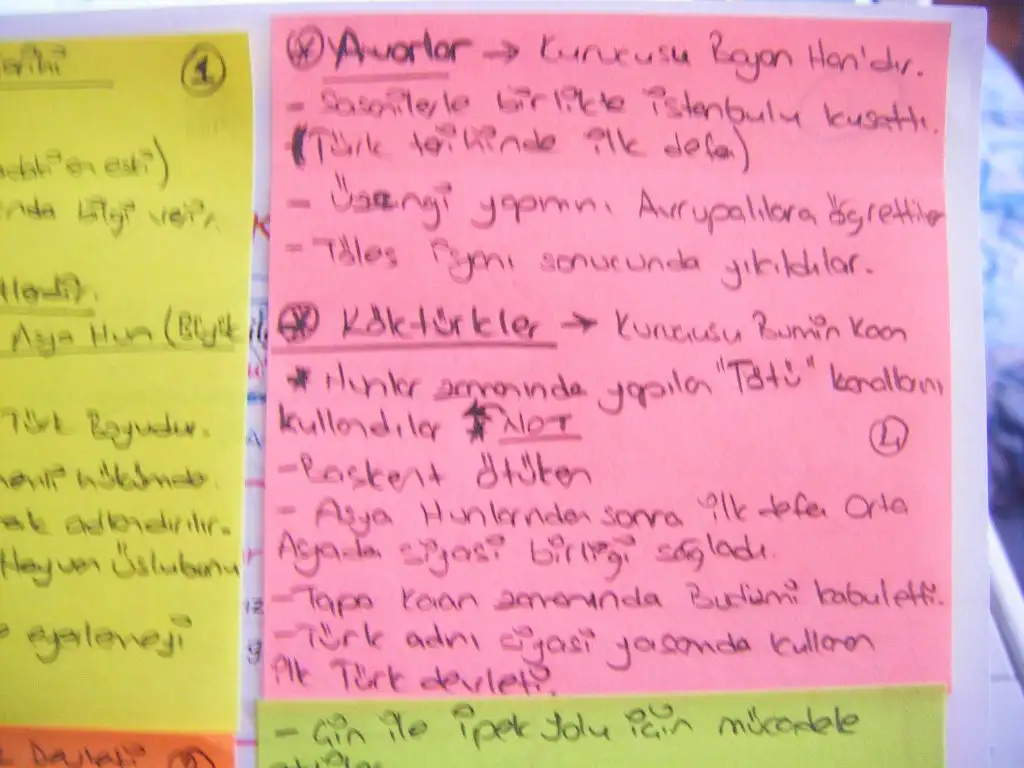 arihi
1
en eski)
nda bilgi verir.
Asya Hun (Büyük
Türk Boyudur.
hükümdo.
adlandırılır.
Hayvan Üslubunu
eyerlemeyi
Devleti
Avarlar → Kurucusu Bayan Han'dır.
- Sasanilerle birlikte istanbulu kuşattı.
(Türk tarihinde ilk defa)
- Üzengi yapımını Avrupalılara öğrettiler
- Töles isyanı sonucunda yıkıldılar.
Köktürkler → Kurucusu Bumin Kaan
* Hunlar zamanında yapılan "Tötü" kanallarını
kullandılar * NOT
4
- Başkent ötüken
- Asya Hunlarından sonra ilk defa Orta
Asyada siyasi birliği sağladı.
- Tapo Kaan zamanında Budizmi kabul etti.
- Türk adını siyasi yasamda kullanan
ilk Türk devleti.
- Çin ile ipek Yolu için mücadele